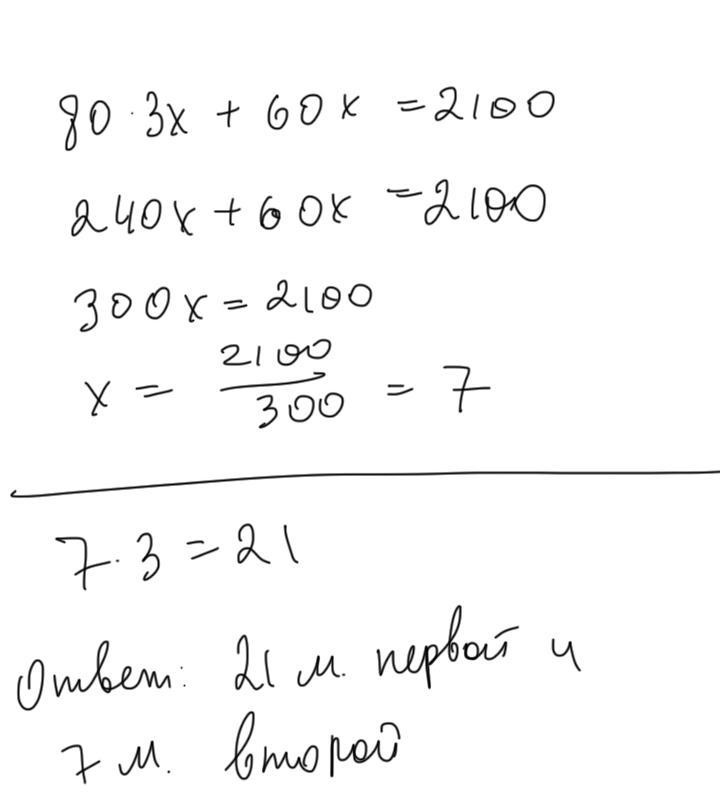 80·3x + 60x = 2100
240x + 60x = 2100
300x = 2100
x = 2100/300 = 7
7·3 = 21
Ответ: 21 м. первой и
7 м. второй